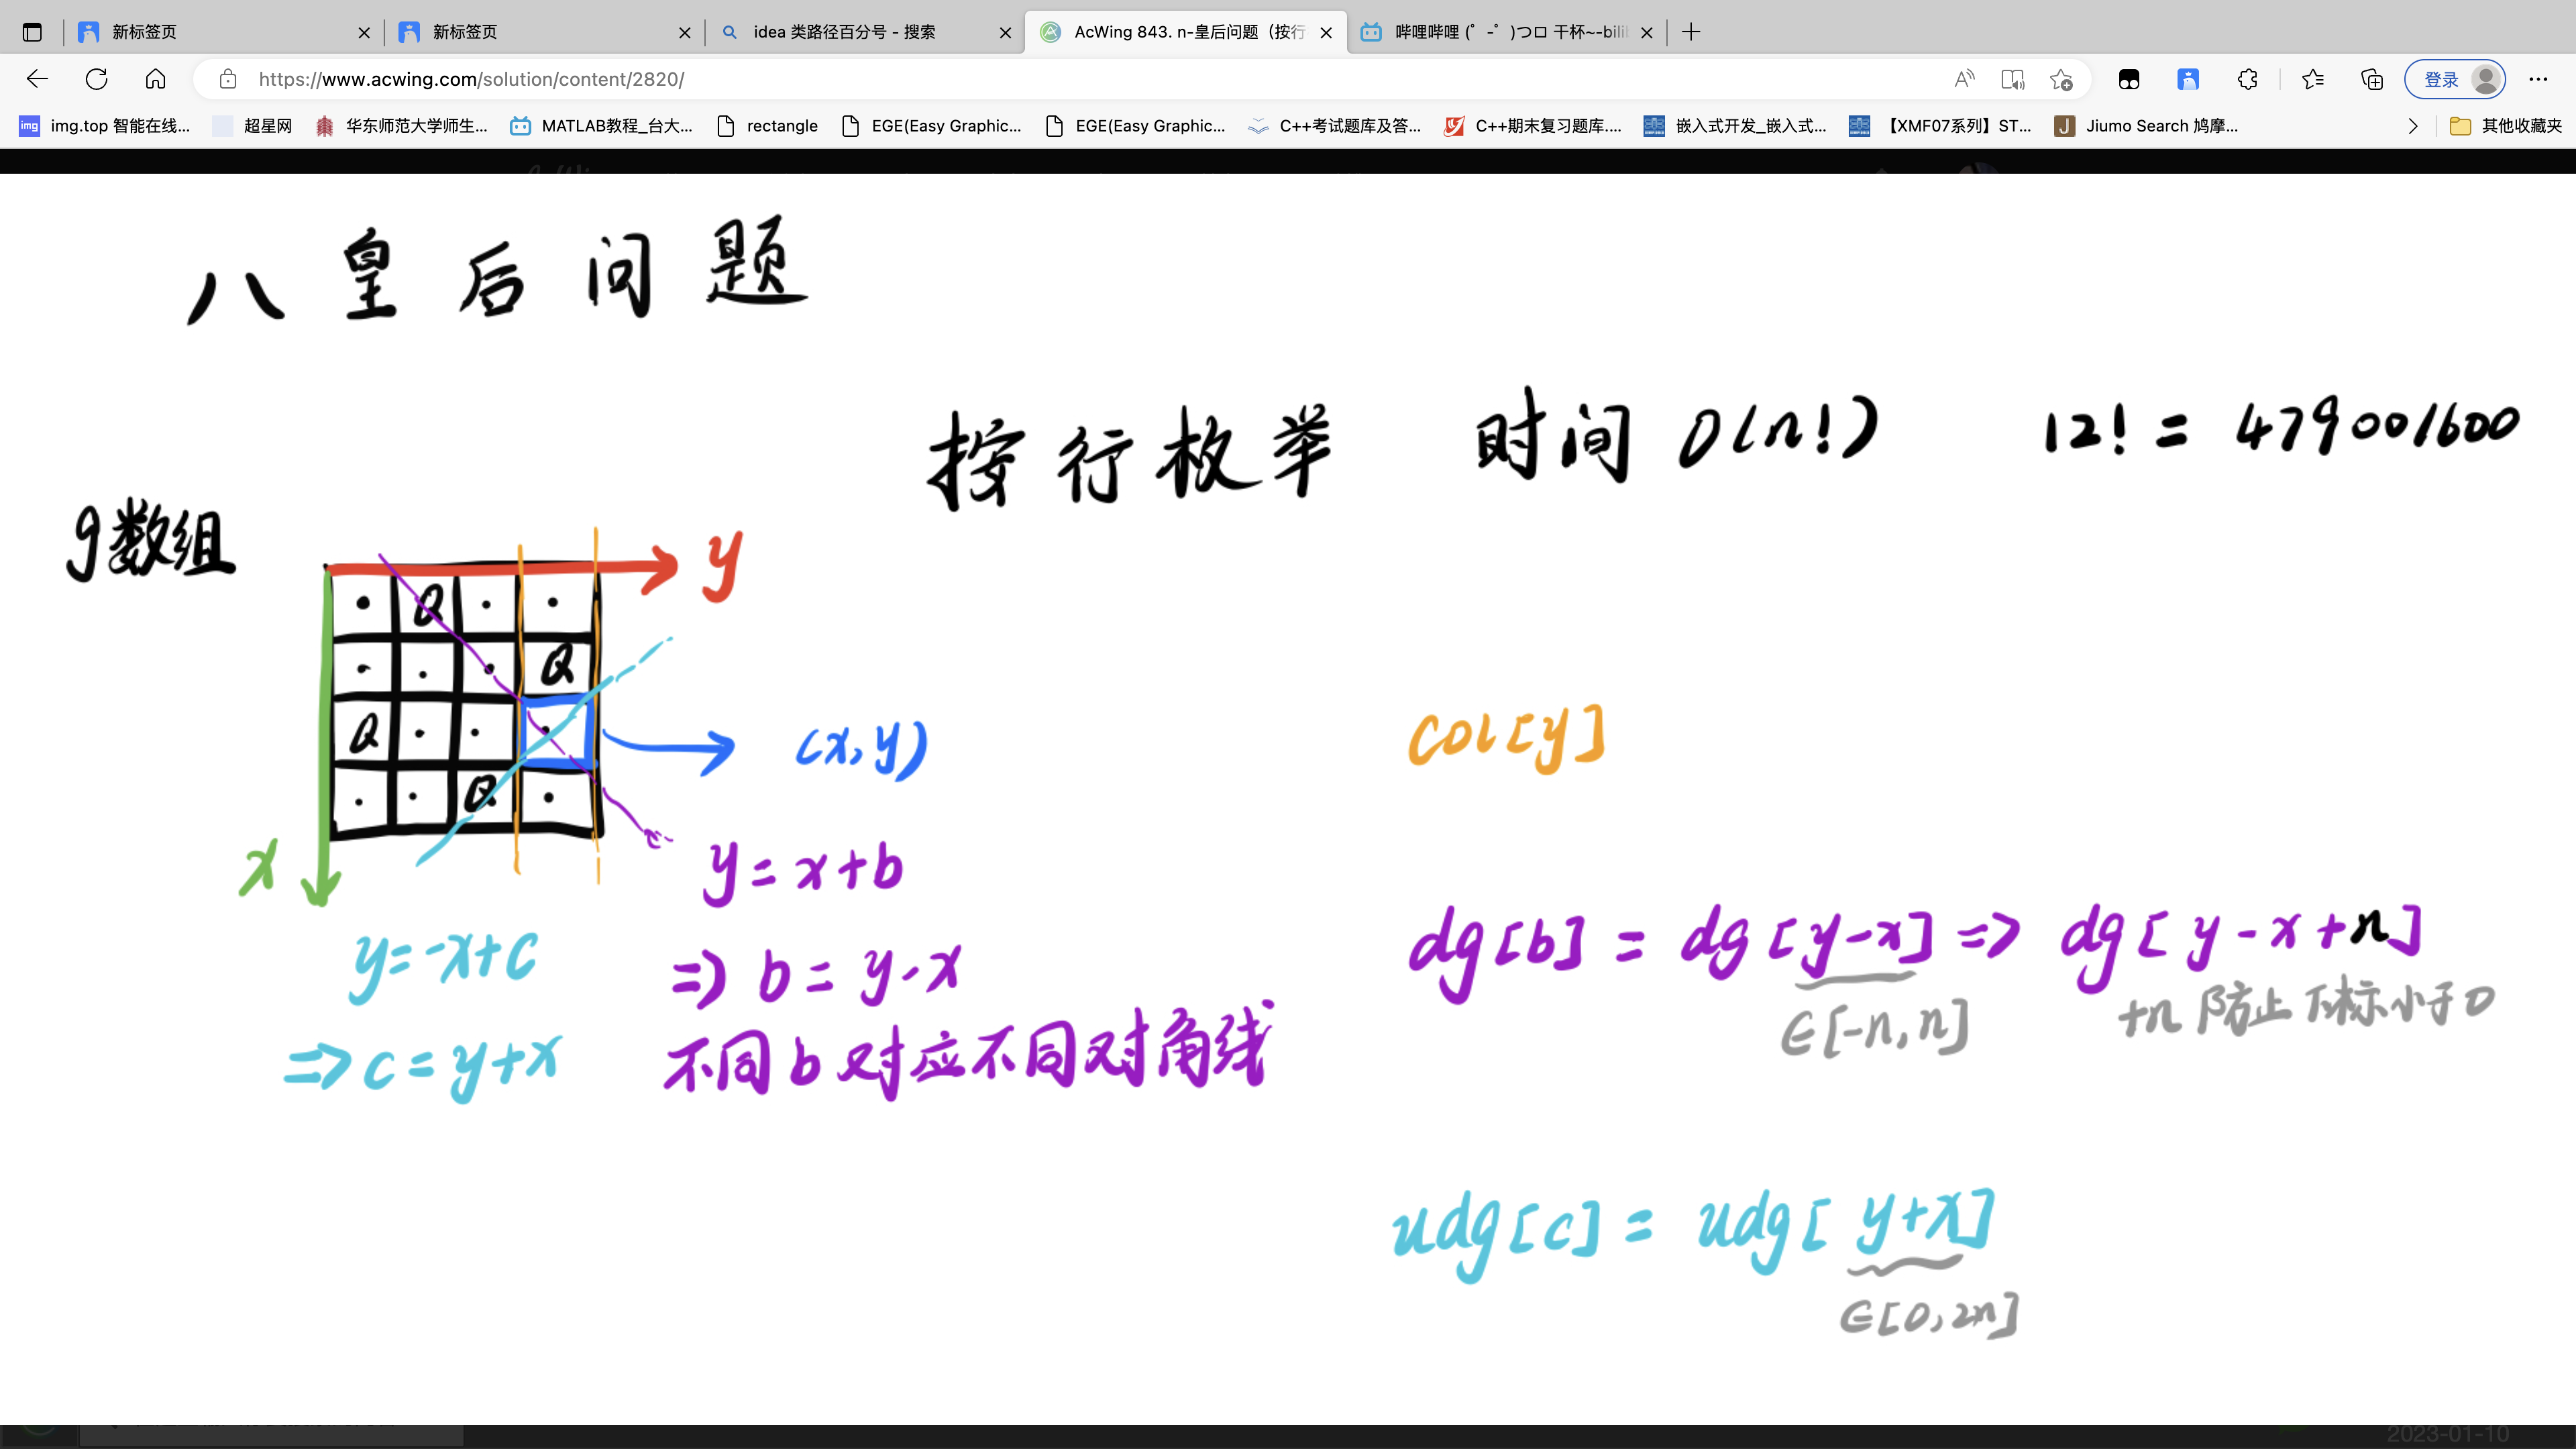 新标签页
新标签页
idea 类路径百分号 - 搜索
AcWing 843. n-皇后问题（按行
哔哩哔哩 (゜-゜)つロ 干杯~-bili
https://www.acwing.com/solution/content/2820/
登录
img.top 智能在线...
超星网
华东师范大学师生...
MATLAB教程_台大...
rectangle
EGE(Easy Graphic...
EGE(Easy Graphic...
C++考试题库及答...
C++期末复习题库....
嵌入式开发_嵌入式...
【XMF07系列】ST...
Jiumo Search 鸠摩...
其他收藏夹
八皇后问题
按行枚举 时间 O(n!) 12! = 479001600
g数组
y
· Q · ·
· · · Q
Q · · ·
· · Q ·
(x,y)
x
y=-x+c
=> c=y+x
y=x+b
=> b=y-x
不同b对应不同对角线
col[y]
dg[b] = dg[y-x] => dg[y-x+n]
∈[-n,n]
+n 防止下标小于0
udg[c] = udg[y+x]
∈[0,2n]
2023-01-10